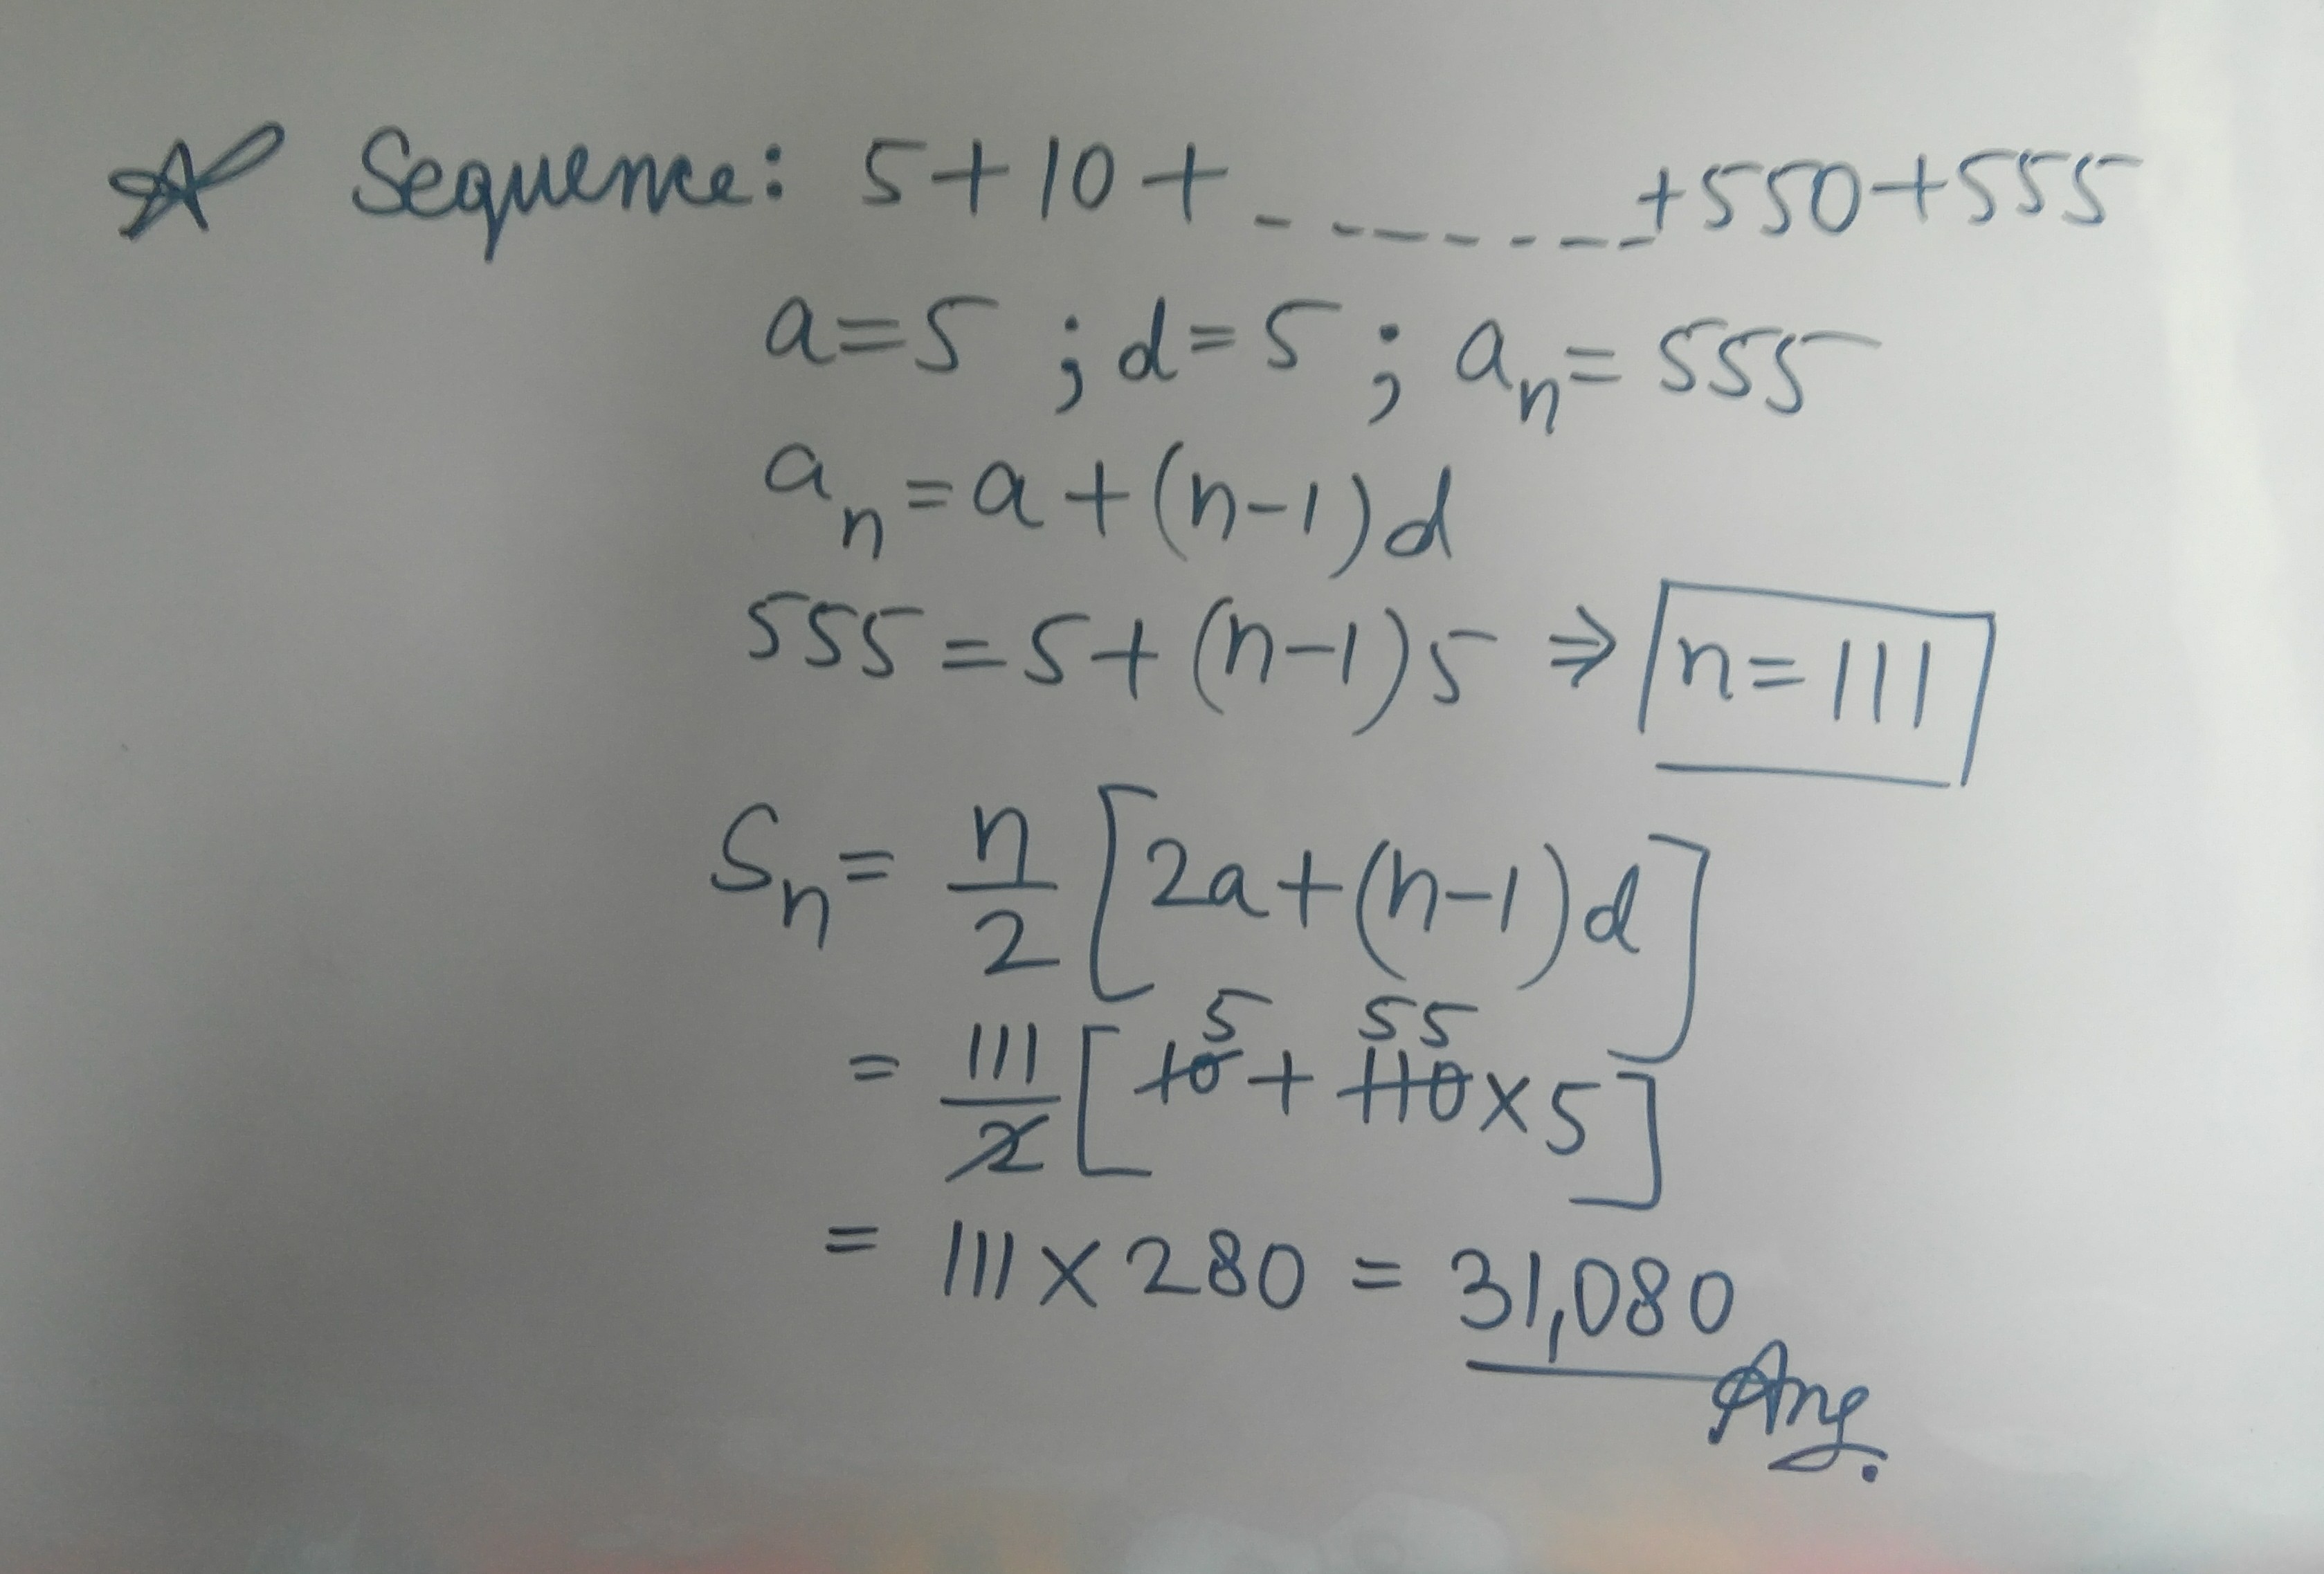 Sequence: 5+10+-------+550+555
a=5 ; d=5 ; aₙ=555
aₙ=a+(n-1)d
555=5+(n-1)5 ⇒ n=111
Sₙ= n/2 [2a+(n-1)d]
5 55
= 111/2 [10+110×5]
= 111×280 = 31,080
Ans.